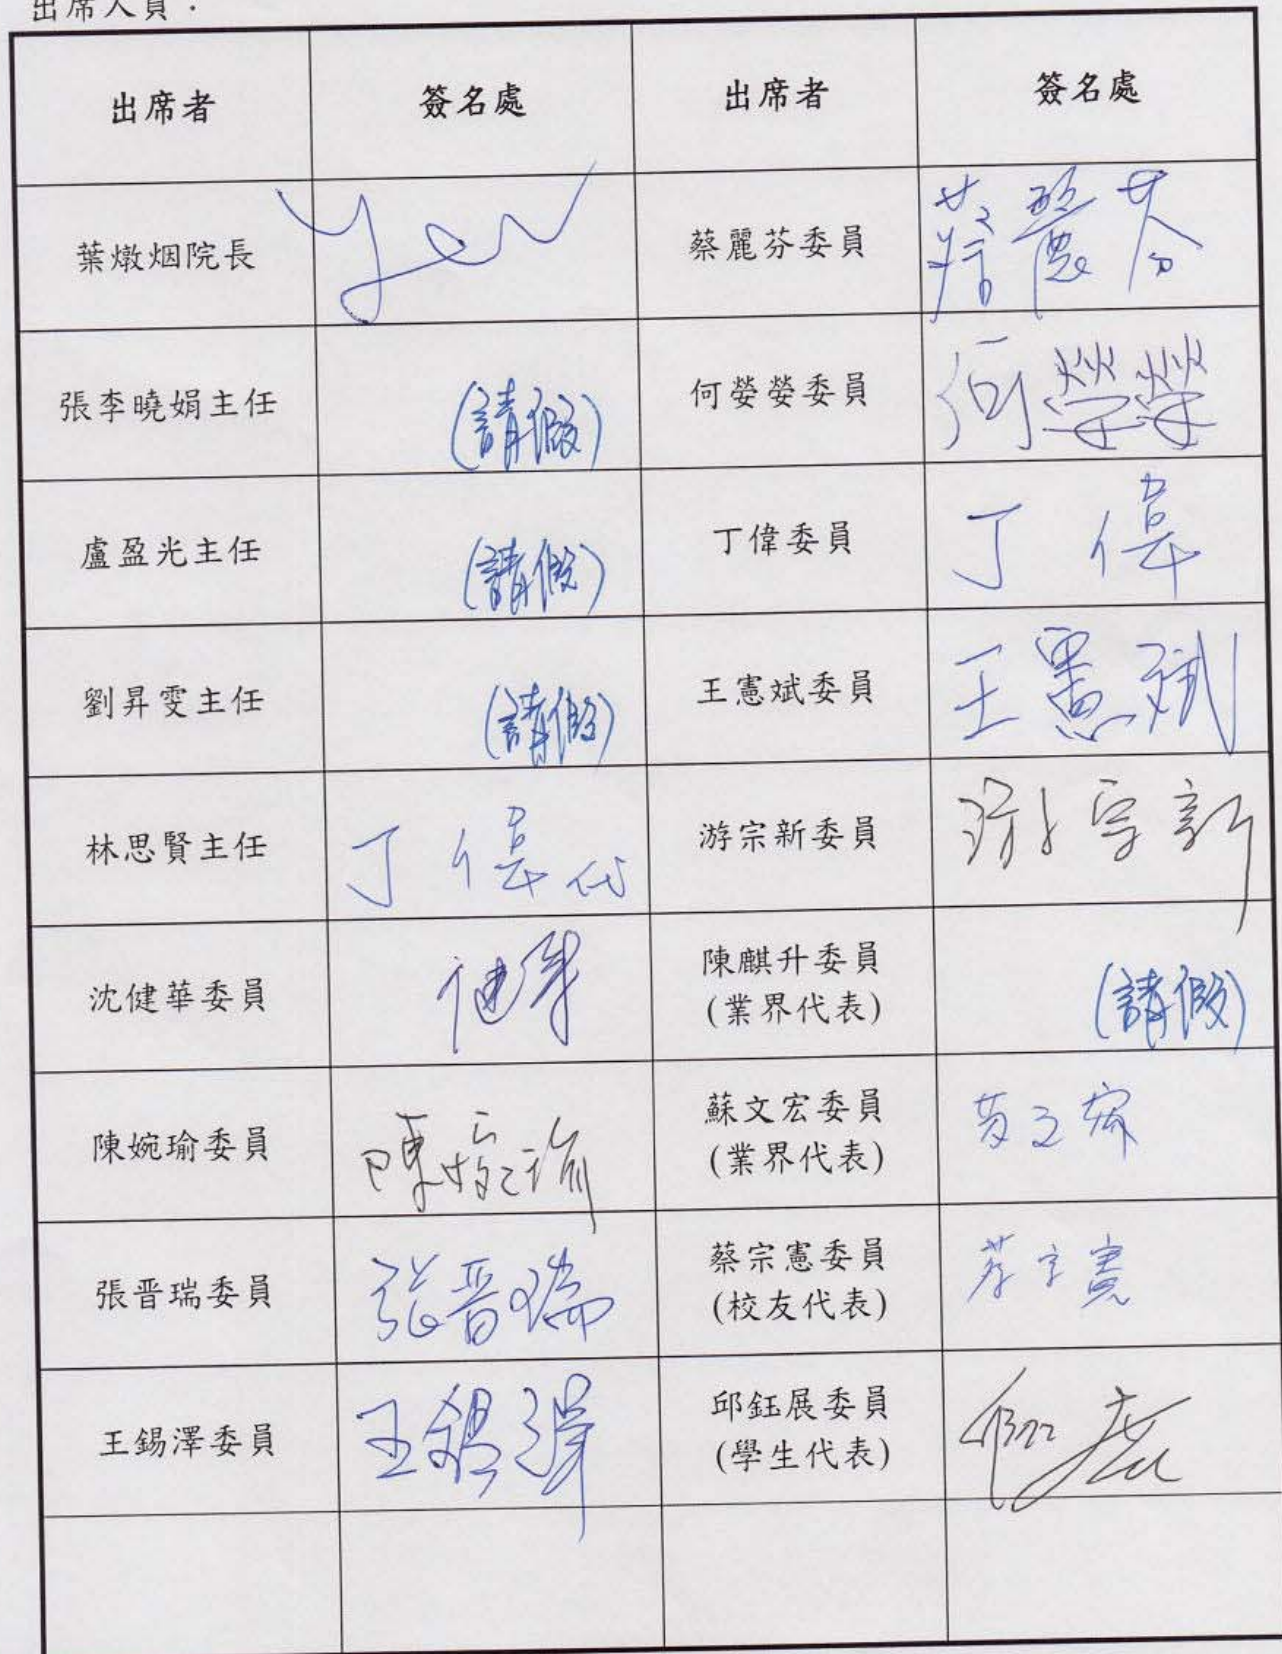 出席人員：
出席者 簽名處 出席者 簽名處
葉燉烟院長 Yen 蔡麗芬委員 蔡麗芬
張李曉娟主任 (請假) 何嫈嫈委員
盧盈光主任 (請假) 丁偉委員 丁偉
劉昇雯主任 (請假) 王憲斌委員 王憲斌
林思賢主任 丁偉代 游宗新委員 游宗新
沈健華委員 健華 陳麒升委員
(業界代表) (請假)
陳婉瑜委員 陳婉瑜 蘇文宏委員
(業界代表)
張晋瑞委員 張晋瑞 蔡宗憲委員
(校友代表) 蔡宗憲
王錫澤委員 王錫澤 邱鈺展委員
(學生代表)